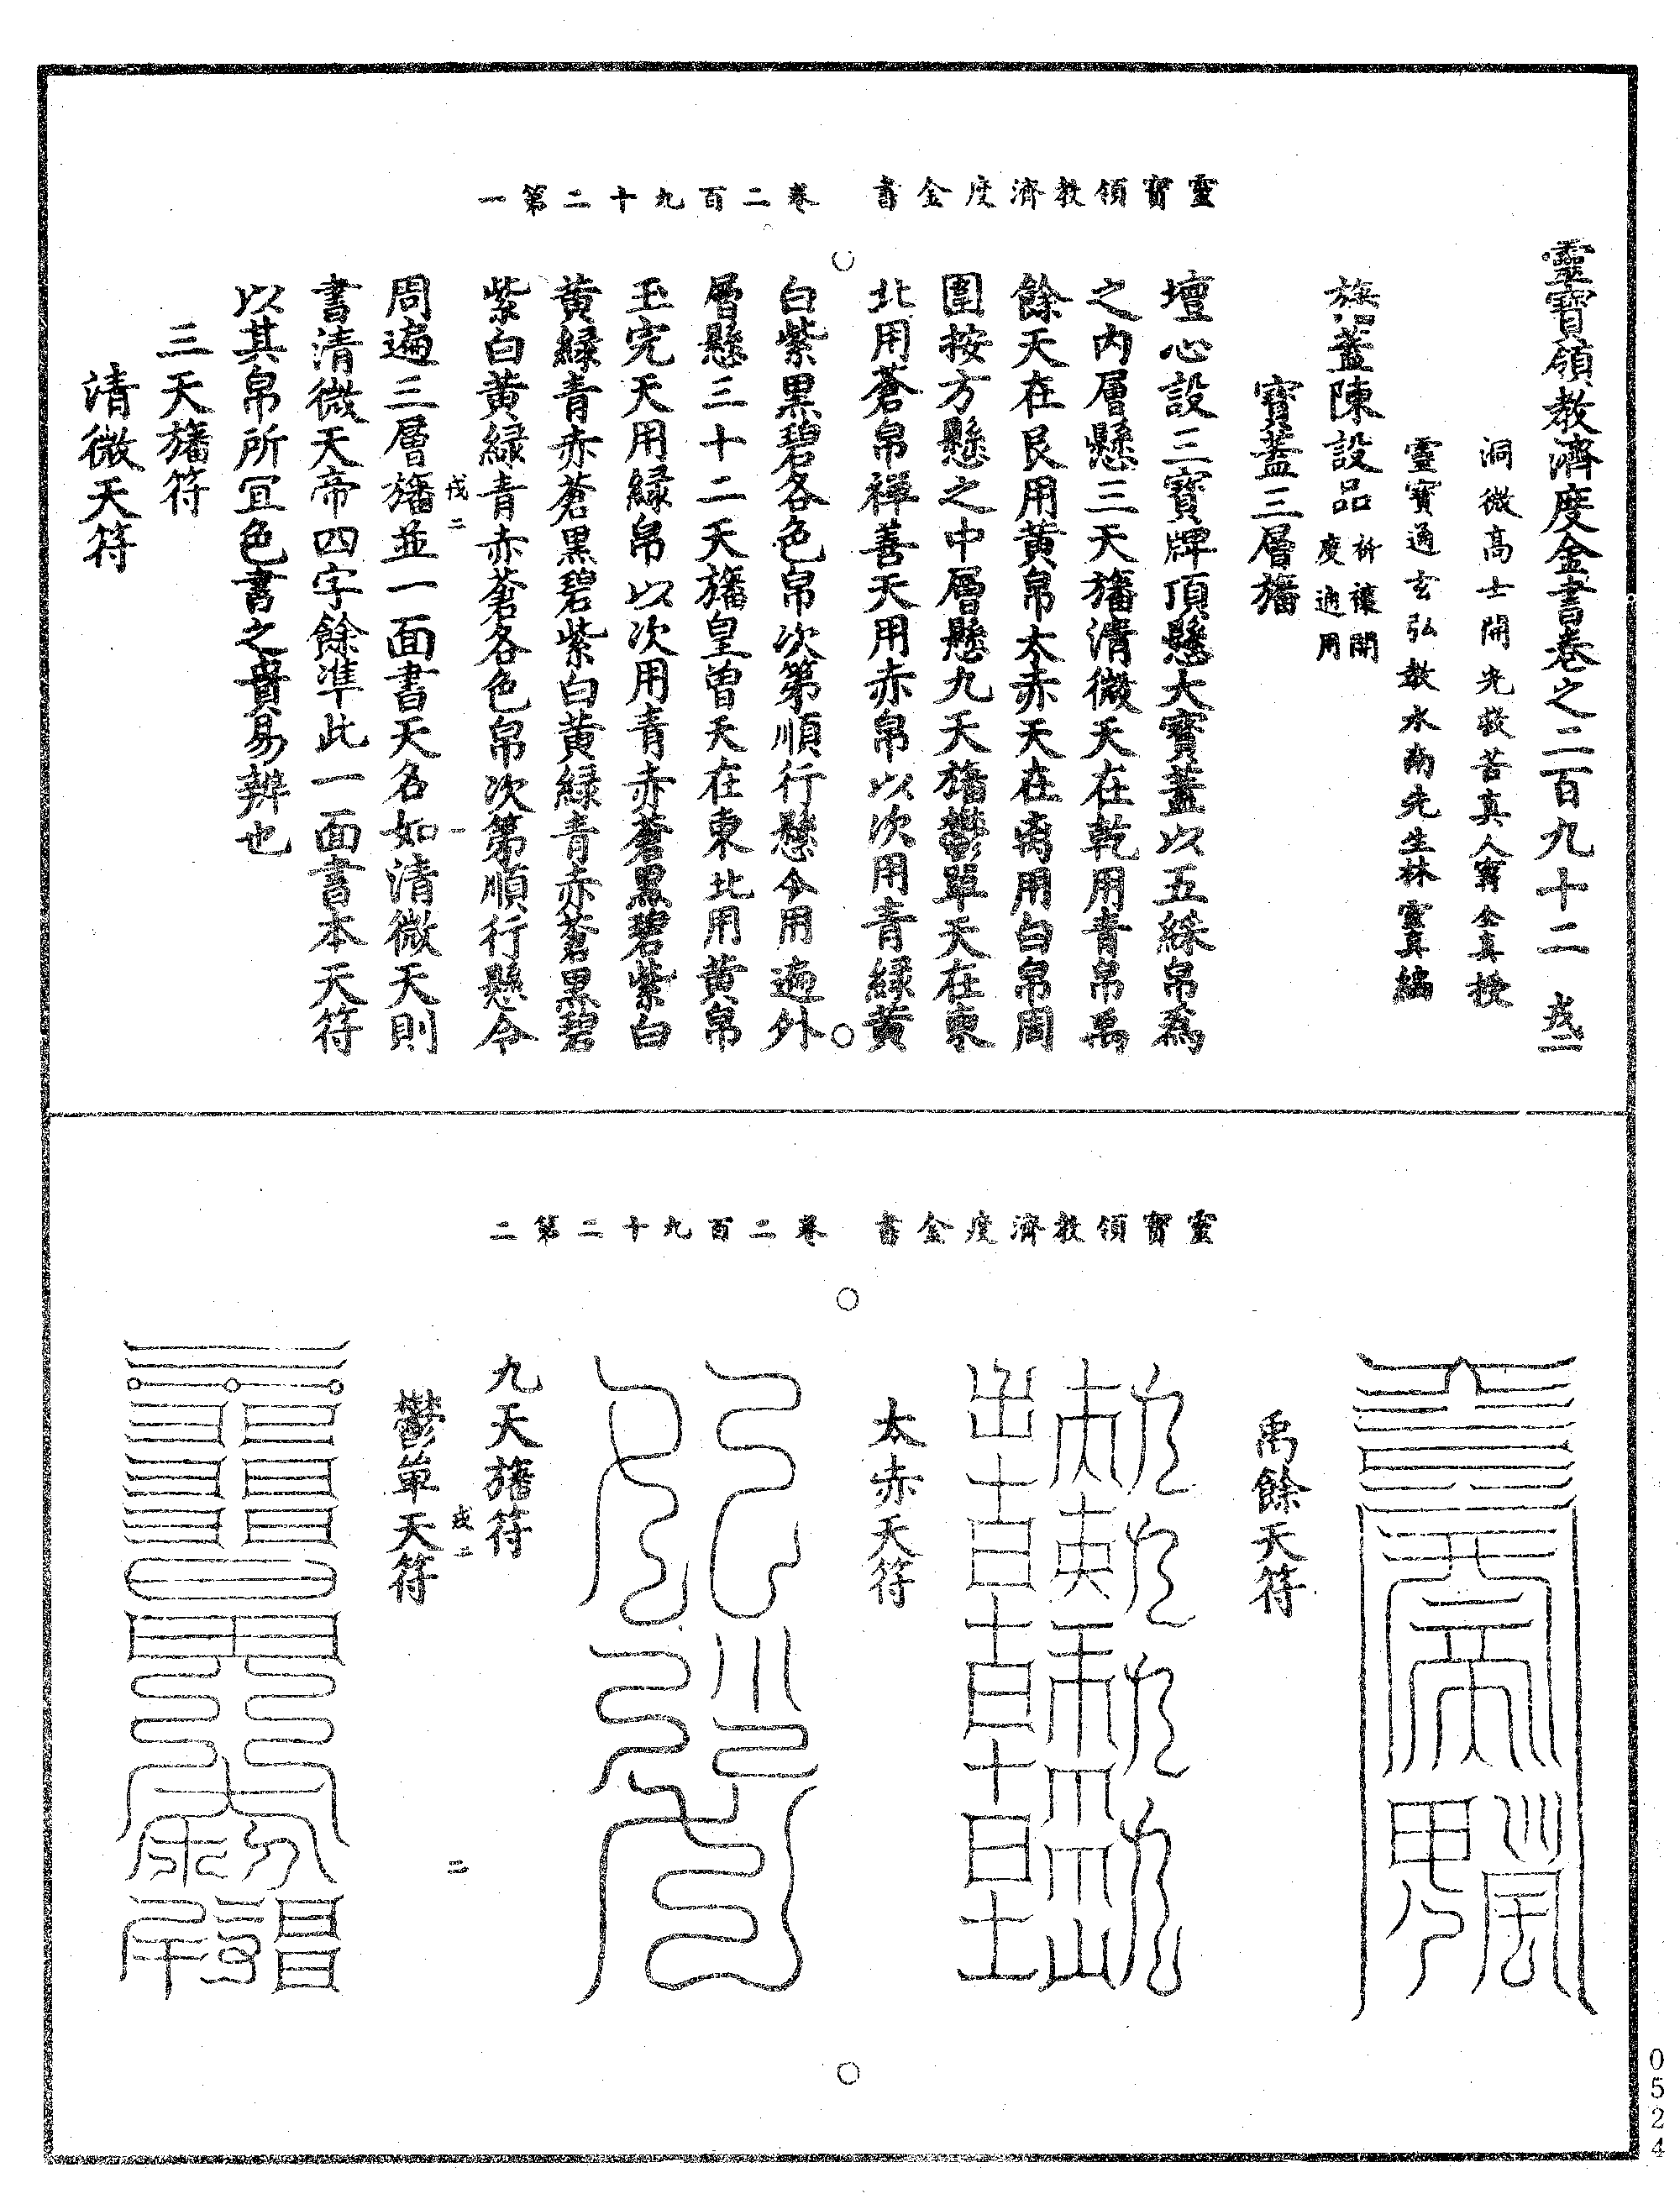 靈寶領教濟度金書 卷二百九十二第一
靈寶領教濟度金書卷之二百九十二 戎二
洞微高士開光救苦真人甯全真授
靈寶通玄弘教水南先生林靈真編
旛蓋陳設品 祈禳開度通用
寶蓋三層旛
壇心設三寶牌頂懸大寶蓋以五綵帛爲
之內層懸三天旛清微天在乾用青帛禹
餘天在艮用黃帛太赤天在离用白帛周
圍按方懸之中層懸九天旛鬱單天在東
北用蒼帛禪善天用赤帛以次用青緑黃
白紫黑碧各色帛次第順行懸令用遍外
層懸三十二天旛皇曾天在東北用黃帛
玉完天用緑帛以次用青赤蒼黑碧紫白
黃緑青赤蒼黑碧紫白黃緑青赤蒼黑碧
紫白黃緑青赤蒼各色帛次第順行懸令
戎二 一
周遍三層旛並一面書天名如清微天則
書清微天帝四字餘準此一面書本天符
以其帛所冝色書之貴易辨也
三天旛符
清微天符
靈寶領教濟度金書 卷二百九十二第二
禹餘天符
太赤天符
九天旛符
戎二 二
鬱單天符
0524